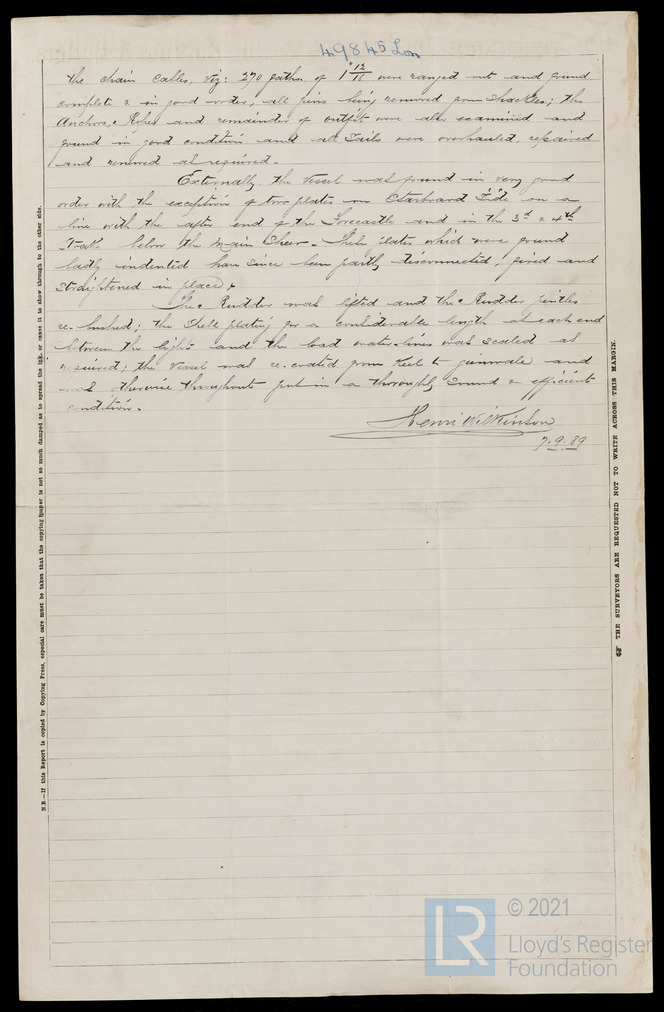 49845 Lon
the chain Cables, viz: 270 faths. of 1" 12/16 were ranged out and found
complete & in good order, all pins being removed from Shackles; the
Anchors, Ropes and remainder of outfit were also examined and
found in good condition and all Sails were overhauled, repaired
and renewed as required.
Externally the Vessel was found in very good
order with the exception of two plates on Starboard Side on a
line with the after end of the Forecastle and in the 3rd & 4th
Strake below the Main Sheer. These plates which were found
badly indented have since been partly disconnected, faired and
straightened in place.
The Rudder was lifted and the Rudder pintles
re-bushed; the Shell plating for a considerable length at each end
between the light and the load water-lines was scaled as
required; the Vessel was re-coated from Keel to gunwale and
was otherwise throughout put in a thoroughly sound & efficient
condition.
Henri Wilkinson
7.9.89
N.B.—If this Report is copied by Copying Press, especial care must be taken that the copying paper is not so much damped as to spread the ink, or cause it to show through to the other side.
THE SURVEYORS ARE REQUESTED NOT TO WRITE ACROSS THIS MARGIN.
LR
© 2021
Lloyd's Register
Foundation